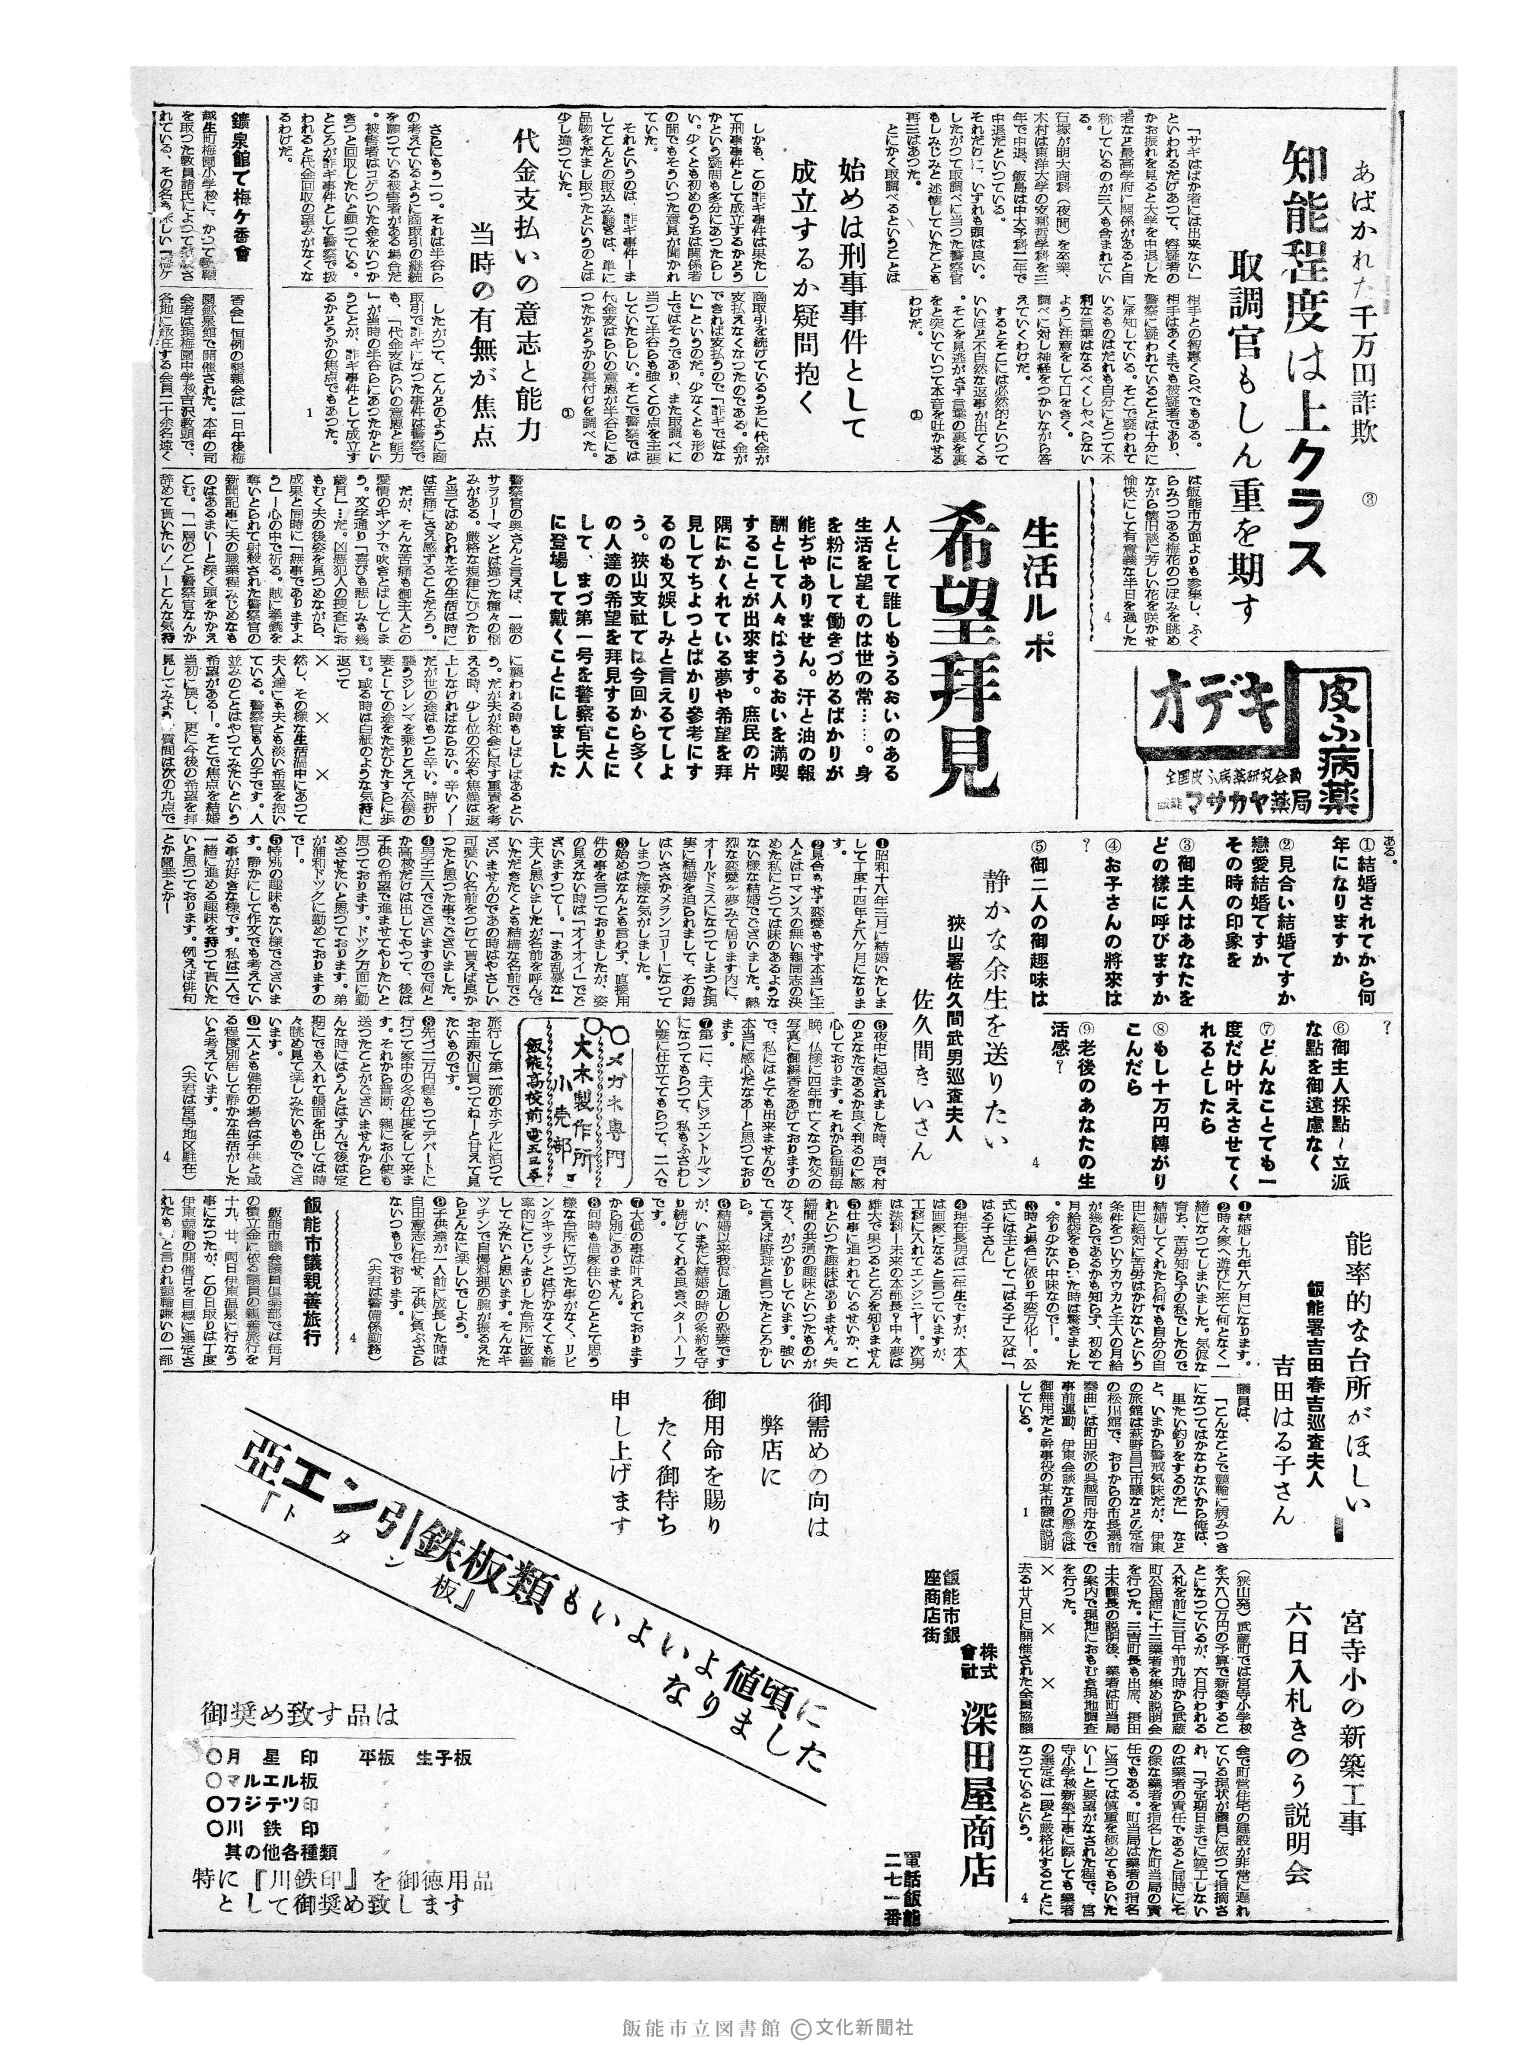 あばかれた千万円詐欺 ③
知能程度は上クラス
取調官もしん重を期す
「サギはばか者には出来ない」
といわれるだけあつて、容疑者の
かお振れを見ると大学を中退した
者など最高学府に関係があると自
称しているのが三人も含まれてい
る。
石塚が明大商科(夜間)を卒業、
木村は東洋大学の支那哲学科を三
年で中退、飯島は中大予科二年で
中退だといつている。
それだけに、いずれも頭は良い。
したがつて取調べに当つた警察官
もしみじみと述懐していたことも
再三はあつた。
とにかく取調べるということは
相手との智恵くらべでもある。
相手はあくまでも被疑者であり、
警察に疑われていることは十分に
に承知している。そこで疑われて
いるものはだれも自分にとつて不
利な言葉はなるべくしやべらない
ように注意をして口をきく。
調べに対し神経をつかいながら答
えていくわけだ。
するとそこには必然的といつて
いいほど不自然な返事が出てくる
。そこを見逃がさず言葉の裏を裏
を突いていつて本音を吐かせる
わけだ。 ①
始めは刑事事件として
成立するか疑問抱く
しかも、この詐ギ事件は果たし
て刑事事件として成立するかどう
かという疑問も多分にあつたらし
い。少くとも初めのうちは関係者
の間でもそういつた意見が聞かれ
ていた。
それというのは、詐ギ事件ーま
してこんどの取込み騒ぎは、単に
品物をだまし取つたというのとは
少し違つていた。
商取引を続けているうちに代金が
支払えなくなつたのである。金が
できれば支払うので「詐ギではな
い」というのだ。少なくとも形の
上ではそうであり、また取調べに
当つて半谷らも強くこの点を主張
していたらしい。そこで警察では
代金支はらいの意思が半谷らにあ
つたかどうかの裏付けを調べた。
①
代金支払いの意志と能力
当時の有無が焦点
さらにもう一つ。それは半谷ら
の考えているように商取引の継続
を願つている被害者がある場合だ
。被害者はコゲついた金をいつか
きつと回収したいと願つている。
ところが詐ギ事件として警察で扱
われると代金回収の望みがなくな
るわけだ。
したがつて、こんどのように商
取引で詐ギになつた事件は警察で
も、「代金支はらいの意思と能力
」が当時の半谷らにあつたかとい
うことが、詐ギ事件として成立す
るかどうかの焦点でもあつた。
1
鑛泉館て梅ケ香會
越生町梅園小学校に、かつて教鞭
を取つた教員諸氏によつて組織さ
れている、その名も床しい「梅ケ
香会」恒例の懇親会は一日午後梅
園鉱泉館で開催された。本年の司
会者は現梅園中学校吉沢教頭で、
各地に散在する会員二十余名遠く
は飯能市方面よりも参集し、ふく
らみつつある梅花のつぼみを眺め
ながら懐旧談に芳しい花を咲かせ
愉快にして有意義な半日を過した
4
皮ふ病薬
オデキ
全国皮ふ病薬研究会員
飯能 マサカヤ薬局
生活ルポ
希望拝見
人として誰しもうるおいのある
生活を望むのは世の常……。身
を粉にして働きづめるばかりが
能ぢやありません。汗と油の報
酬として人々はうるおいを満喫
することが出來ます。庶民の片
隅にかくれている夢や希望を拜
見してちよつとばかり參考にす
るのも又娯しみと言えるでしよ
う。狹山支社では今回から多く
の人達の希望を拜見することに
して、まづ第一号を警察官夫人
に登場して戴くことにしました
警察官の奥さんと言えば、一般の
サラリーマンとは違つた種々の悩
みがある。厳格な規律にぴつたり
と当てはめられたその生活は時に
は苦痛にさえ感ずることだろう。
だが、そんな苦痛も御主人との
愛情のキヅナで吹きとばしてしま
う。文字通り「喜びも悲しみも幾
歳月」…だ。凶悪犯人の捜査にお
もむく夫の後姿を見つめながら、
成果と同時に「無事でありますよ
う」ー心の中で祈る。賊に拳銃を
奪いとられて射殺された警察官の
新聞記事に夫の職業程みじめなも
のはあるまいーと深く頭をかかえ
こむ。「一層のこと警察官なんか
辞めて貰いたい!」ーこんな気持
に襲われる時もしばしばあるとい
う。だが夫が社会に尽す重責を考
える時、少し位の不安や焦燥は返
上しなければならない。辛い!ー
だが世の途はもつと辛い。時折り
襲うジレンマを乗りこえて公僕の
妻としての途をただひたすらに歩
む。或る時は白紙のような気持に
返つて
× × ×
然し、その様な生活渦中にあつて
夫人達にも夫とも淡い希望を抱い
ている。警察官も人の子です。人
並みのことはやつてみたいという
希望があるー。そこで焦点を結婚
当初に戻し、更に今後の希望を拝
見してみよう。質問は次の九点で
ある。
①結婚されてから何
年になりますか
②見合い結婚ですか
戀愛結婚ですか
その時の印象を
③御主人はあなたを
どの樣に呼びますか
④お子さんの將來は
?
⑤御二人の御趣味は
?
⑥御主人採點~立派
な點を御遠慮なく
⑦どんなことても一
度だけ叶えさせてく
れるとしたら
⑧もし十万円轉がり
こんだら
⑨老後のあなたの生
活感?
4
静かな余生を送りたい
狹山署佐久間武男巡査夫人
佐久間きいさん
❶昭和十八年三月に結婚いたしま
して丁度十四年と八ケ月になりま
す。
❷見合もせず恋愛もせず本当に主
人とはロマンスの無い親同志の決
めた私にとつては味のあるような
ない様な結婚でございました。熱
烈な恋愛を夢みて居ります内に、
オールドミスになつてしまつた現
実に結婚を迫られまして、その時
はいささかメランコリーになつて
しまつた様な気がしました。
❸始めはなんとも言わず、直接用
件の事を言つておりましたが、姿
の見えない時は「オイオイ」でご
ざいますつて!。「まあ乱暴な」
主人と思いましたが名前を呼んで
いただきたくとも結構な名前でご
ざいませんのであの時はやさしい
可愛いい名前をつけて貰えば良か
つたと思つた事でございました。
❹男子三人でございますので何と
か高校だけは出してやつて、後は
子供の希望で進ませてやりたいと
思つております。ドツグ方面に勤
めさせたいと思つております。弟
が浦和ドツグに勤めておりますの
でー。
❺特別の趣味もない様でございま
す。静かにして作文でも考えてい
る事が好きな様です。私は二人で
一緒に進める趣味を持つて貰いた
いと思つております。例えば俳句
とか園芸とかー
❻夜中に起されました時、声で村
のどなたであるか良く判るのに感
心しております。それから毎朝毎
晩、仏様に四年前亡くなつた父の
写真に御線香をあげておりますの
で、私にはとても出来ませんので
本当に感心だなあーと思つており
ます。
❼第一に、主人にジエントルマン
になつてもらつて、私もふさわし
い妻に仕立ててもらつて、二人で
旅行して第一流のホテルに泊つて
お土産沢山買つてねーと甘えて見
たいものです。
❽先づ二万円程もつてデパートに
行つて家中の冬の仕度をして来ま
す。それから普断、親にお小使も
送つたことがございませんからこ
んな時にはうんとはずんで後は定
期にでも入れて帳面を出しては時
々眺め見て楽しみたいものでござ
います。
❾二人とも健在の場合は子供と或
る程度別居して静かな生活がした
いと考えています。
(夫君は宮寺地区駐在)
4
メガネ専門
大木製作所
小売部
飯能高校前
能率的な台所がほしい
飯能署吉田春吉巡査夫人
吉田はる子さん
❶結婚し九年八ケ月になります。
❷時々家へ遊びに来て何となく一
緒になつてしまいました。気侭な
育ち、苦労知らずの私でしたので
結婚してくれたら何でも自分の自
由に絶対に苦労はかけないという
条件をついウカウカと主人の月給
が幾らであるかも知らず、初めて
月給袋をもらいた時は驚きました
。余り少ない中味なのでー。
❸時と場合に依り千変万化ー。公
式には主として「はる子」又は「
はる子さん」
❹現在長男は二年生ですが、本人
は画家になると言つていますが、
工科に入れてエンジニヤー。次男
は法科ー未来の本部長?中々夢は
雄大で果つるところを知りません
❺仕事に追われているせいか、こ
れといつた趣味はありません。夫
婦間の共通の趣味といつたものが
なく、がつかりしています。強い
て言えば野球と言つたところかし
ら。
❻結婚以来我侭し通しの恐妻です
が、いまだに結婚の時の条約を守
り続けてくれる良きベターハーフ
です。
❼大低の事は叶えられております
から別にありません。
❽何時も借家住いのこととて思う
様な台所に立つた事がなく、リビ
ングキッチンとは行かなくても能
率的にこじんまりした台所に改善
してみたいと思います。そんなキ
ツチンで自慢料理の腕が振るえた
らどんなに楽しいでしよう。
❾子供達が一人前に成長した時は
自由意志に任せ、子供に負ぶさら
ないつもりでおります。
(夫君は警備係勤務)
4
飯能市議親善旅行
飯能市議会議員倶楽部では毎月
の積立金に依る議員の親善旅行を
十九、廿、両日伊東温泉に行なう
事になつたが、この日取りは丁度
伊東競輪の開催日を目標に選定さ
れたもの と言われ競輪嫌いの一部
議員は、
「こんなことで競輪に病みつき
になつてはかなわないから俺は、
重たい釣りをするのだ」 など
と、いまから警戒気味だが、伊東
の旅館は萩野昌己市議などの定宿
の松川館で、おりからの市長選前
奏曲には町田派の呉越同舟なので
事前運動、伊東会談などの懸念は
御無用だと幹事役の某市議は説明
している。
1
宮寺小の新築工事
六日入札きのう説明会
(狭山発)武蔵町では宮寺小学校
を六八〇万円の予算で新築するこ
とになつているが、六日行われる
入札を前に三日午前九時から武蔵
町公民館に十三業者を集め説明会
を行つた。三吉町長も出席、摂田
土木課長の説明後、業者は町当局
の案内で現地におもむき現地調査
を行つた。
× × ×
去る廿八日に開催された全員協議
会で町営住宅の建設が非常に遅れ
ている現状が議員に依つて指摘さ
れ、「予定期日までに竣工しない
のは業者の責任であると同時にそ
の様な業者を指名した町当局の責
任でもある。町当局は業者の指名
に当つては慎重を極めてもらいた
いー」と要望がなされた程で、宮
寺小学校新築工事に際しても業者
の選定は一段と厳格化することに
なつているという。
4
御需めの向は
弊店に
御用命を賜り
たく御待ち
申し上げます
亞エン引鉄板類もいよいよ値頃に
なりました
『トタン板』
御奨め致す品は
○月星印 平板 生子板
○マルエル板
○フジテツ印
○川鉄印
其の他各種類
特に『川鉄印』を御徳用品
として御奨め致します
飯能市銀
座商店街
株式
會社 深田屋商店
電話飯能
二七一番
飯能市立図書館 ©文化新聞社